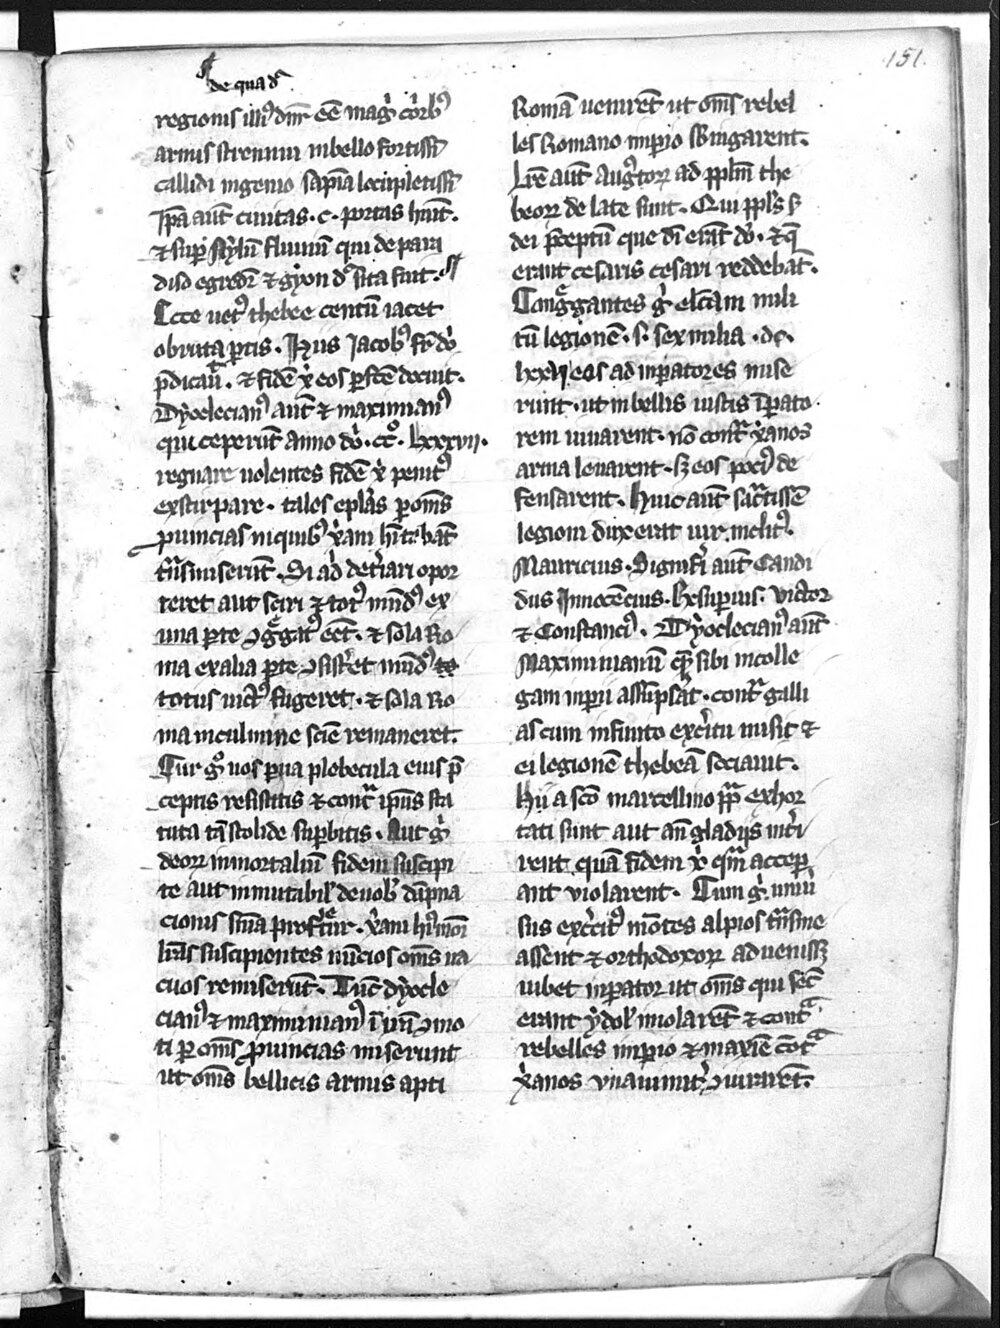 151
de qua dr̄
regionis illi᷒ dnr̄ eē mag̾ cōrbꝰ
armis strennui in bello fortissi
callidi ingenio sapīa locupletissi
Ipā aut̄ ciuitas · c · portas hn̄t ·
⁊ sup̄ Nylū fluuiū qui de para
diso egredr̄ ⁊ gyon dr̄ sita fuit ·
Ecce uetꝰ thebee centū iacet
obruta ꝑtis · Hus Jacobꝰ fr̄ dn̄i
p̄dicauͭ · ⁊ fidē x̄ eos ꝑfctē docuit ·
Dyoclecianꝰ aut̄ ⁊ maximianꝰ
qui ceperūt anno dn̄i · cc° · lxxxvii ·
regnare uolentes fidē x̄ penitꝰ
exstirpare · tales epl̄as ꝑ om̄s
ꝓuincias in quibꝰ x̄ani hītabāt
tn̄smiserūt · Si ad det̄iari opor
teret aut sciri ⁊ totꝰ mūdꝰ ex
una ꝑte ↄg̾gatꝰ eēt · ⁊ sola Ro
ma ex alia ꝑte ↄsist̄et mūdꝰ
totus uictꝰ fugeret · ⁊ sola Ro
ma in culmine sciē remaneret ·
Cur g° uos ꝑua plebecula eius p̄
ceptis resistitis ⁊ contͣ ipius sta
tuta tā stolide suꝑbitis · Aut g̾
deoꝝ inmortaliū fidem suscipi
te aut inmutabilꝰ de uobꝰ dāpna
cionis sn̄ia profertur · x̄ani hꝰ modi
lrās suscipientes nūcios om̄s ua
cuos remiserūt · Tūc dyocle
cianꝰ ⁊ maximianꝰ ī irā ↄmo
ti ꝑ om̄s ꝓuincias miserunt
ut om̄s bellicis armis apti
Romā uenirēt ut om̄s rebel
les Romano imꝑio sb̄iugarent ·
Lr̄e aut̄ Augꝰtoꝝ ad ppl̄m the
beoꝝ de late sunt · Qui ppl̄s s̄
dei p̄ceptū que di erāt dō · ⁊ q̄
erant cesaris cesari reddebāt ·
Congͤgantes g̾ elc̄am mili
tū legionē · s · sex milia · dc ·
lxxvi eos ad inꝑatores mise
runt · ut in bellis iustis īꝑato
rem iuuarent · nō contͣ x̄anos
arma leuarent · sꝫ eos pociꝰ de
fensarent · Huic aut̄ sacͭissē
legioni dux erat uir inclitꝰ ·
Mauricius · Signifi̇ aut̄ Candi
dus Innocēcius · Exsuꝑius · Victor
⁊ Constanciꝰ · Dyoclecianꝰ aut̄
Maximianū qͤ sibi in colle
gam inꝑii assūpsāt · contͣ galli
as cum infinito exc̄itu misit ⁊
ei legionē thebeā sociauit ·
Hii a scō marcellino pp̄ exhor
tati sunt aut an̄ gladiis int̄i
rent quā fidem x̄ qm̄ accep̄
ant violarent · Cum g̾ uniū
sus exc̄itꝰ mōtes alpios tn̄sme
assent ⁊ orthodoxoꝝ aduenissꝫ
iubet inꝑator ut om̄s qui secū
erant ydolꝰ imolarēt ⁊ contͣ
rebelles imꝑio ⁊ maxīe contͣ
x̄anos vnanimit̄ ↄiurarēt ·